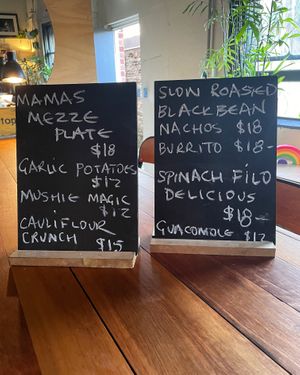 MAMAS
MEZZE
PLATE
$18
GARLIC POTATOES
$12
MUSHIE MAGIC
$12
CAULIFLOUR
CRUNCH $15
SLOW ROASTED
BLACKBEAN
NACHOS $18
BURRITO $18-
SPINACH FILO
DELICIOUS
$18-
GUACOMOLE $12